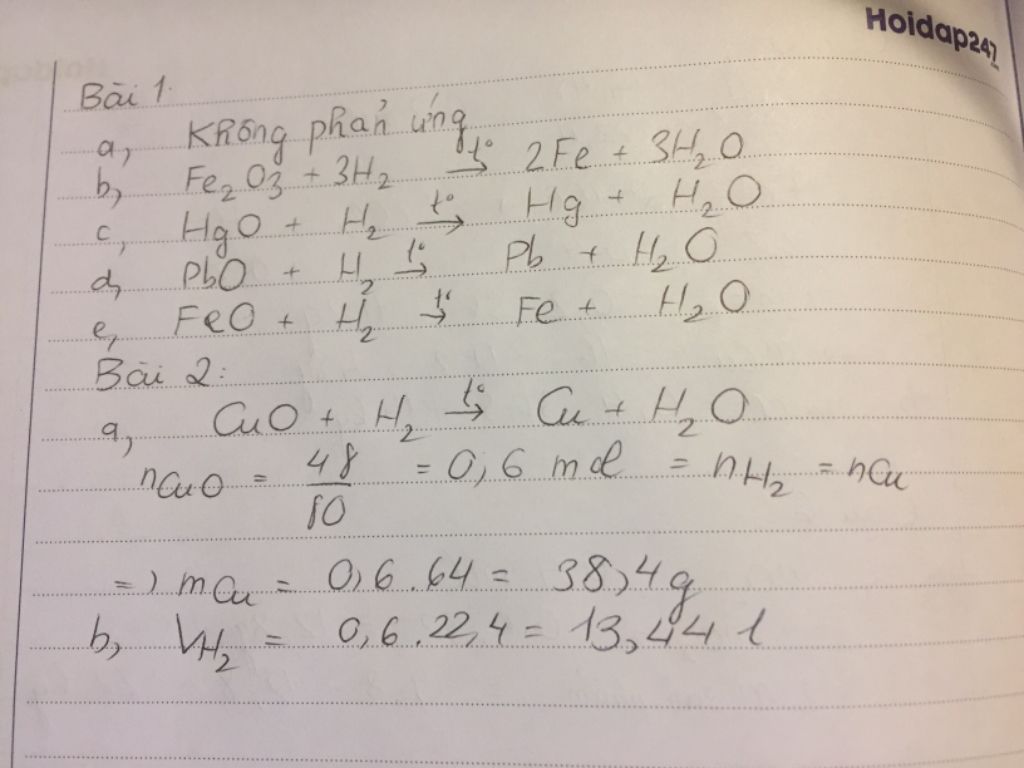 Hoidap247
Bài 1.
a, Không phản ứng
b, Fe₂O₃ + 3H₂ →(t°) 2Fe + 3H₂O
c, HgO + H₂ →(t°) Hg + H₂O
d, PbO + H₂ →(t°) Pb + H₂O
e, FeO + H₂ →(t°) Fe + H₂O
Bài 2:
a, CuO + H₂ →(t°) Cu + H₂O
nCuO = 48/80 = 0,6 mol = nH₂ = nCu
=) mCu = 0,6.64 = 38,4g
b, VH₂ = 0,6.22,4 = 13,44 l